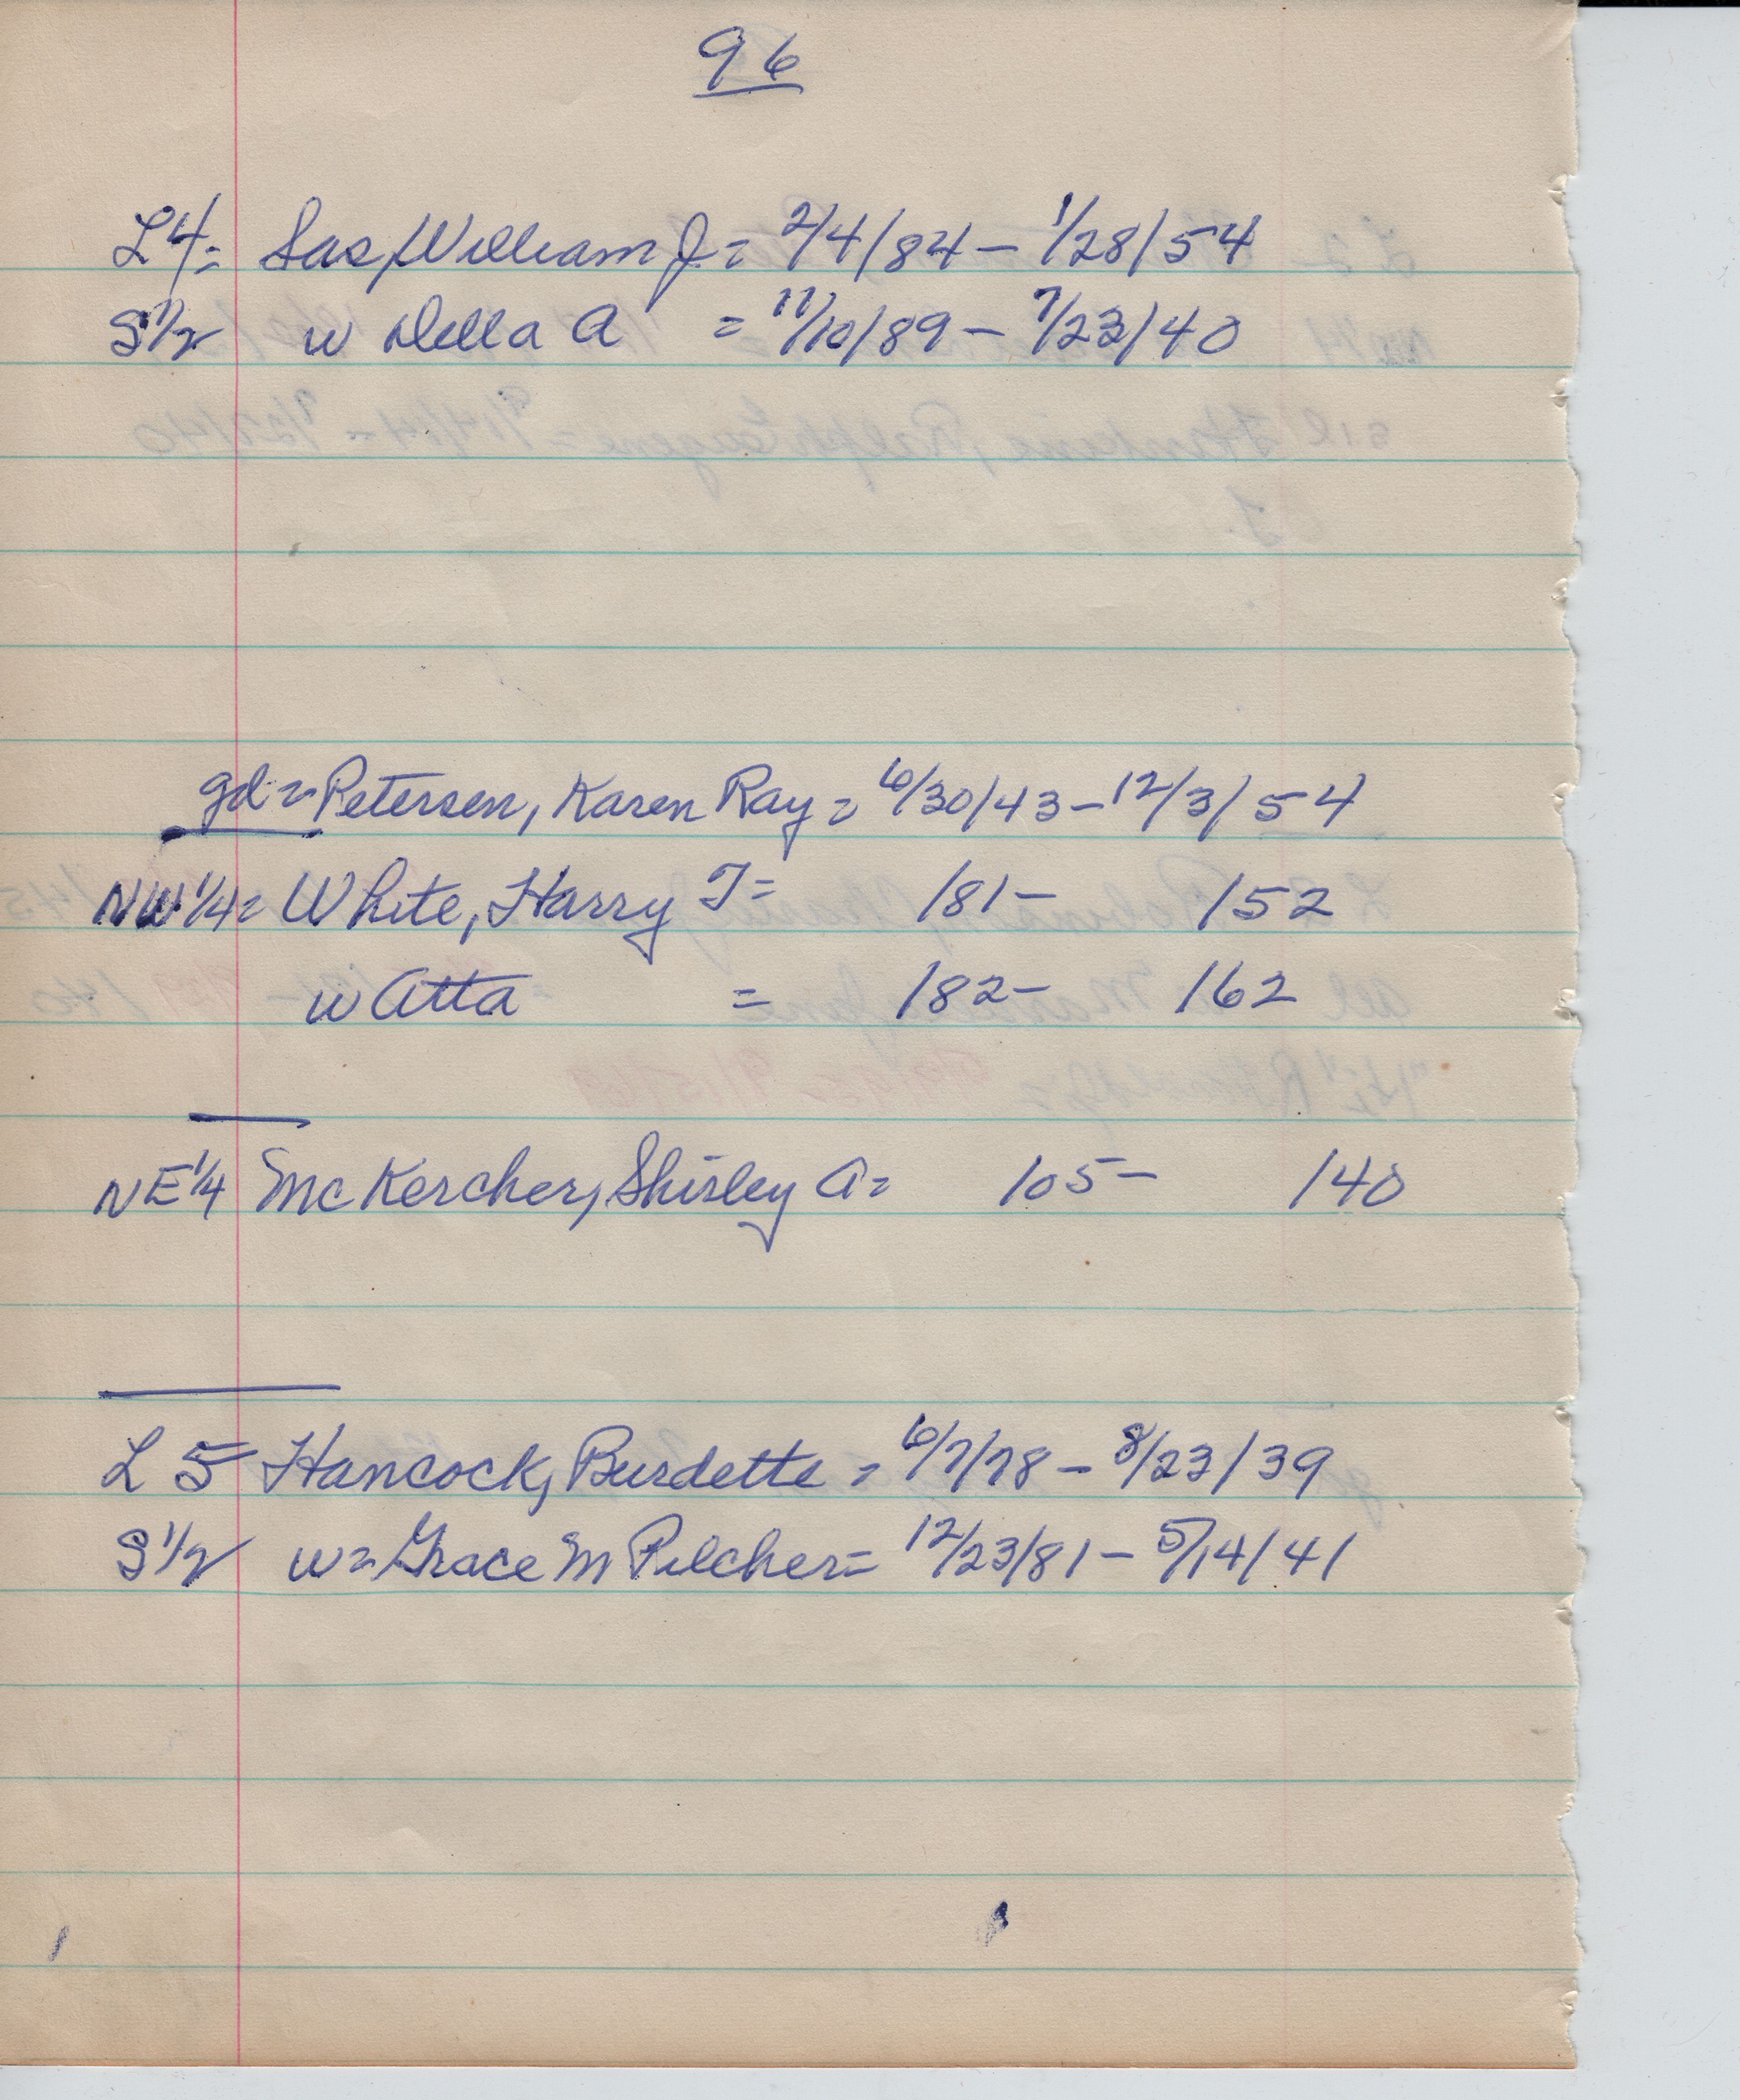 96
L4= Sas, William J = 2/4/84 – 1/28/54
S 1/2 w Della A = 11/10/89 – 7/23/40
gd = Petersen, Karen Ray = 6/30/43 – 12/3/54
NW 1/4 = White, Harry T = /81 – /52
w Atta = /82 – /62
NE 1/4 McKercher, Shirley A = /05 – /40
L 5 Hancock, Burdette = 6/7/78 – 8/23/39
S 1/2 w = Grace M Pilcher = 12/23/81 – 5/14/41